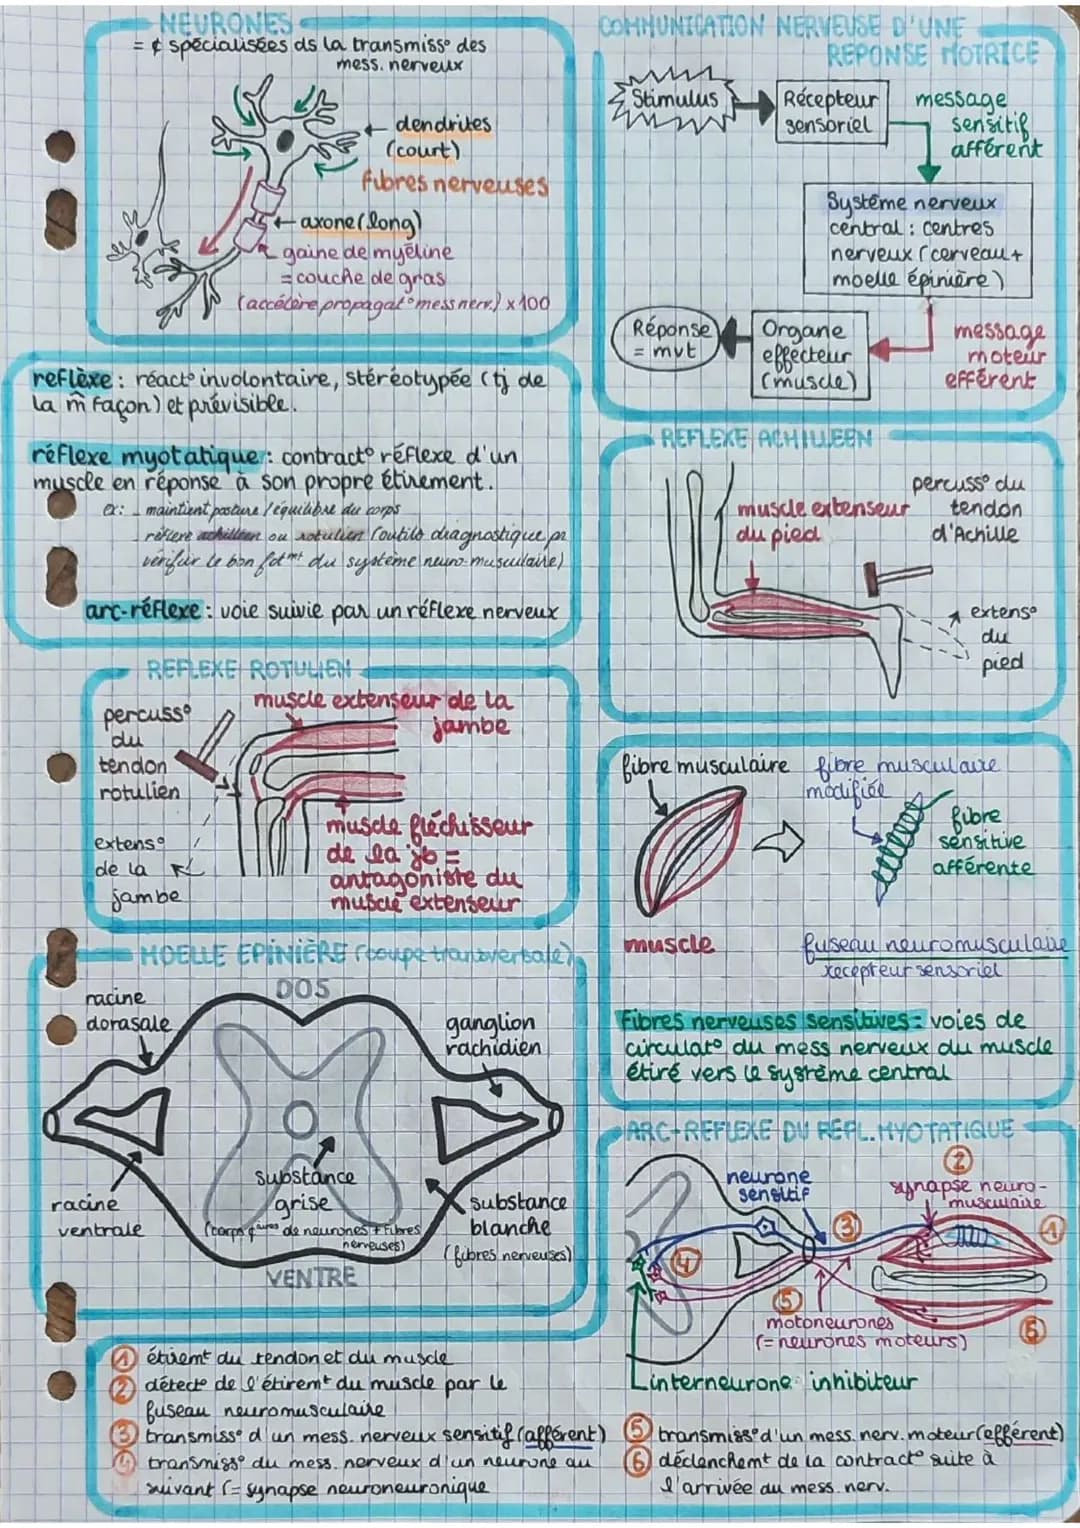 NEURONES
= ¢ spécialisées ds la transmiss° des
mess. nerveux
dendrites
(court)
fibres nerveuses
axone (long)
gaine de myéline
= couche de gras
(accélère propagat° mess nerv.) x100
COMMUNICATION NERVEUSE D'UNE
REPONSE MOTRICE
Stimulus
Récepteur
sensoriel
message
sensitif
afférent
Système nerveux
central : centres
nerveux (cerveau +
moelle épinière)
message
moteur
efférent
Organe
effecteur
(muscle)
Réponse
= mvt
reflèxe : réact° involontaire, stéréotypée (tj de
la m̂ façon) et prévisible.
réflexe myotatique : contract° réflexe d'un
muscle en réponse à son propre étirement.
ex: - maintient posture / équilibre du corps
- réflexe achilléen ou rotulien (outils diagnostique pr
vérifier le bon fctmt du système neuro-musculaire)
arc-réflexe : voie suivie par un réflexe nerveux
REFLEXE ACHILLEEN
muscle extenseur
du pied
percuss° du
tendon
d'Achille
extens°
du
pied
REFLEXE ROTULIEN
percuss°
du
tendon
rotulien
extens°
de la
jambe
muscle extenseur de la
jambe
muscle fléchisseur
de la jb =
antagoniste du
muscle extenseur
fibre musculaire
fibre musculaire
modifiée
fibre
sensitive
afférente
muscle
fuseau neuromusculaire
recepteur sensoriel
Fibres nerveuses sensitives : voies de
circulat° du mess nerveux du muscle
étiré vers le système central
MOELLE EPINIÈRE (coupe transversale)
DOS
racine
dorasale
ganglion
rachidien
racine
ventrale
substance
grise
(corps ¢aires de neurones + fibres
nerveuses)
substance
blanche
(fibres nerveuses)
VENTRE
ARC-REFLEXE DU REFL. MYOTATIQUE
neurone
sensitif
2
synapse neuro-
musculaire
3
1
4
5
motoneurones
(= neurones moteurs)
6
interneurone inhibiteur
1 étiremt du tendon et du muscle
2 détect° de l'étiremt du muscle par le
fuseau neuromusculaire
3 transmiss° d'un mess. nerveux sensitif (afférent)
4 transmiss° du mess. nerveux d'un neurone au
suivant (= synapse neuroneuronique
5 transmiss° d'un mess. nerv. moteur (efférent)
6 déclenchemt de la contract° suite à
l'arrivée du mess. nerv.